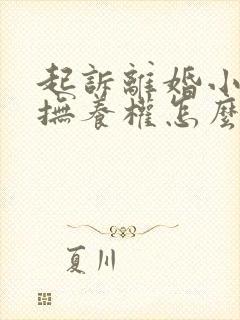 起訴離婚小
撫養權怎麼
夏川